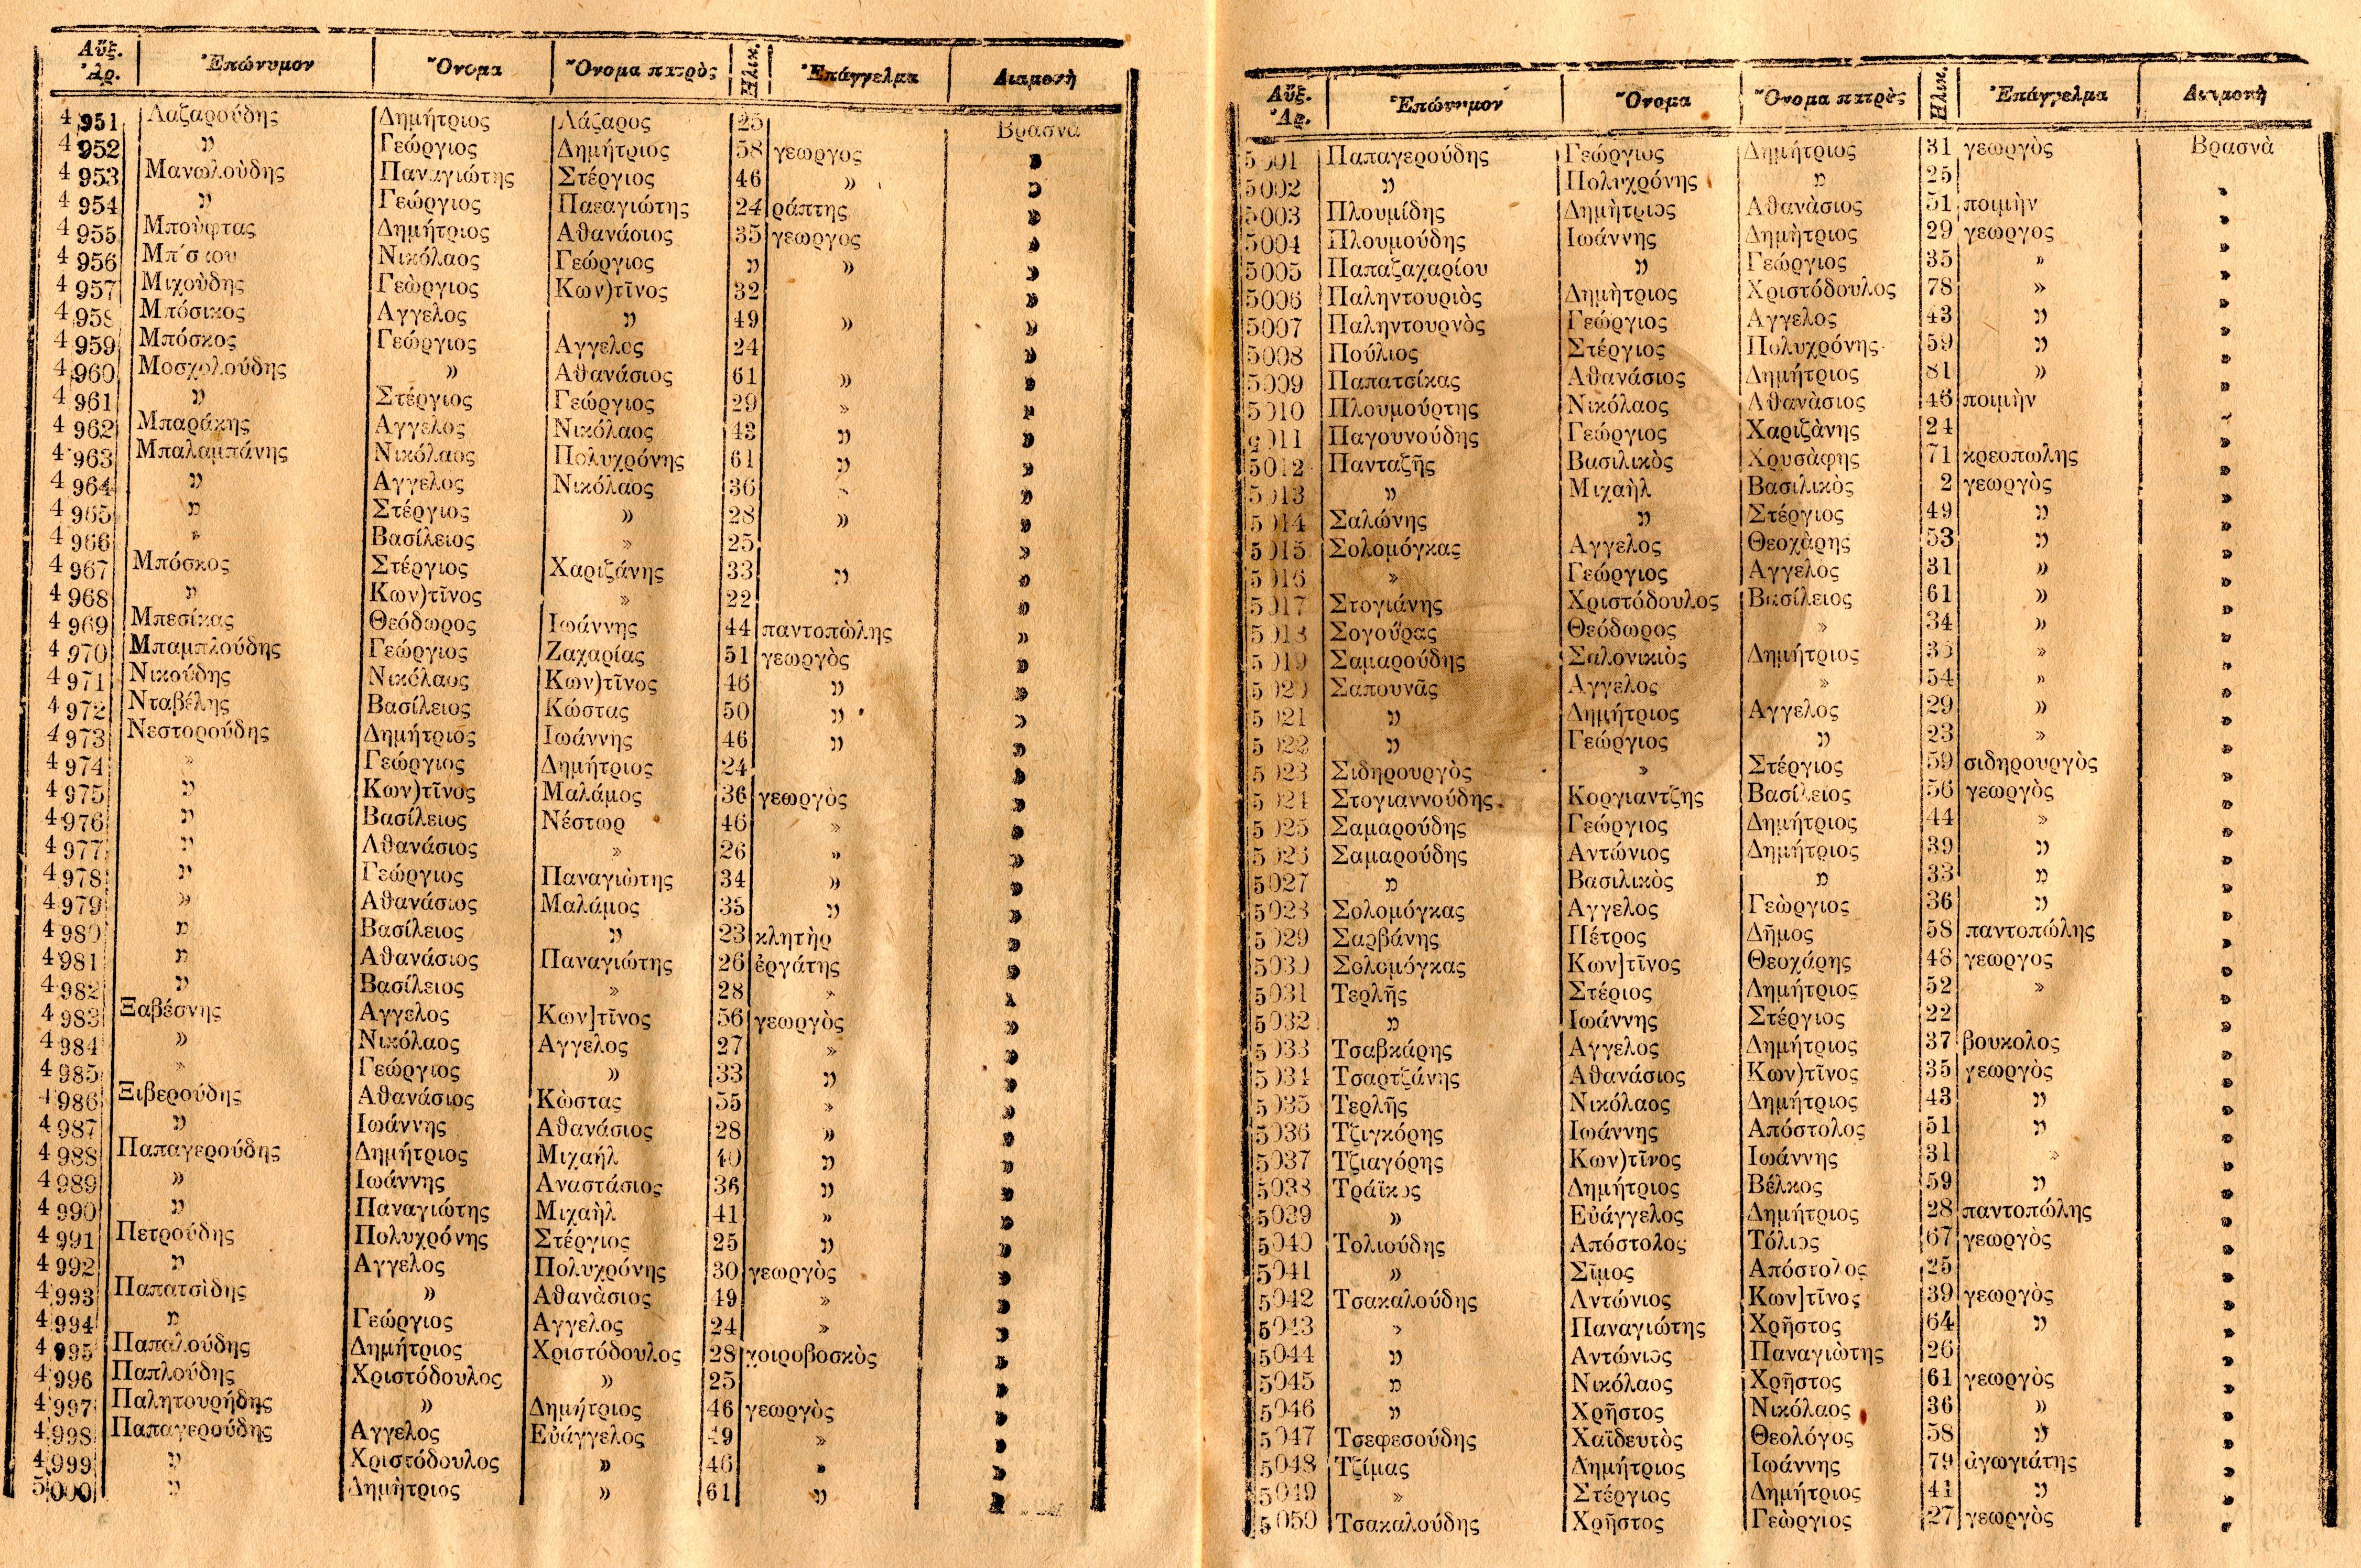 Αὔξ. Ἀρ. Ἐπώνυμον Ὄνομα Ὄνομα πατρὸς Ἡλικ. Ἐπάγγελμα Διαμονὴ
4951 Λαζαρούδης Δημήτριος Λάζαρος 25 Βρασνὰ
4952 » Γεώργιος Δημήτριος 58 γεωργος »
4953 Μανωλούδης Παναγιώτης Στέργιος 46 » »
4954 » Γεώργιος Παεαγιώτης 24 ράπτης »
4955 Μποὺφτας Δημήτριος Αθανάσιος 35 γεωργος »
4956 Νικόλαος Γεώργιος » » »
4957 Μιχοὺδης Γεὼργιος Κων)τῖνος 32 »
4958 Μπόσικος Αγγελος » 49 » »
4959 Μπόσκος Γεώργιος Αγγελος 24 »
4960 Μοσχολούδης » Αθανάσιος 61 » »
4961 » Στέργιος Γεώργιος 29 » »
4962 Μπαράκης Αγγελος Νικόλαος 43 » »
4963 Μπαλαμπάνης Νικόλαος Πολυχρόνης 61 » »
4964 » Αγγελος Νικόλαος 36 » »
4965 » Στέργιος » 28 » »
4966 » Βασίλειος » 25 »
4967 Μπόσκος Στέργιος Χαριζάνης 33 » »
4968 » Κων)τῖνος » 22 »
4969 Μπεσίκας Θεόδωρος Ιωάννης 44 παντοπὼλης »
4970 Μπαμπλούδης Γεώργιος Ζαχαρίας 51 γεωργὸς »
4971 Νικούδης Νικόλαος Κων)τῖνος 46 » »
4972 Νταβέλης Βασίλειος Κώστας 50 » »
4973 Νεστορούδης Δημήτριος Ιωάννης 46 » »
4974 » Γεώργιος Δημήτριος 24 »
4975 » Κων)τῖνος Μαλάμος 36 γεωργὸς »
4976 » Βασίλειος Νέστωρ 46 » »
4977 » Αθανάσιος » 26 » »
4978 » Γεώργιος Παναγιὼτης 34 » »
4979 » Αθανάσιος Μαλάμος 35 » »
4980 » Βασίλειος » 23 κλητὴρ »
4981 » Αθανάσιος Παναγιώτης 26 ἐργάτης »
4982 » Βασίλειος » 28 » »
4983 Ξαβέσνης Αγγελος Κων]τῖνος 56 γεωργὸς »
4984 » Νικόλαος Αγγελος 27 » »
4985 » Γεώργιος » 33 » »
4986 Ξιβερούδης Αθανάσιος Κὼστας 55 » »
4987 » Ιωάννης Αθανάσιος 28 » »
4988 Παπαγερούδης Δημήτριος Μιχαήλ 40 » »
4989 » Ιωάννης Αναστάσιος 36 » »
4990 » Παναγιώτης Μιχαὴλ 41 » »
4991 Πετρούδης Πολυχρόνης Στέργιος 25 » »
4992 » Αγγελος Πολυχρόνης 30 γεωργὸς »
4993 Παπατσὶδης » Αθανὰσιος 49 » »
4994 » Γεώργιος Αγγελος 24 » »
4995 Παπαλούδης Δημήτριος Χριστόδουλος 28 χοιροβοσκὸς »
4996 Παπλούδης Χριστόδουλος » 25 »
4997 Παλητουρήδης » Δημήτριος 46 γεωργὸς »
4998 Παπαγερούδης Αγγελος Εὐάγγελος 49 » »
4999 » Χριστόδουλος » 46 » »
5000 » Δημὴτριος » 61 » »
Αὔξ. Ἀρ. Ἐπώνυμον Ὄνομα Ὄνομα πατρὸς Ἡλικ. Ἐπάγγελμα Διαμονὴ
5001 Παπαγερούδης Γεώργιος Δημήτριος 31 γεωργὸς Βρασνὰ
5002 » Πολυχρόνης » 25 »
5003 Πλουμίδης Δημὴτριος Αθανὰσιος 51 ποιμὴν »
5004 Πλουμούδης Ιωάννης Δημὴτριος 29 γεωργος »
5005 Παπαζαχαρίου » Γεώργιος 35 » »
5006 Παληντουριὸς Δημὴτριος Χριστόδουλος 78 » »
5007 Παληντουρνὸς Γεώργιος Αγγελος 43 » »
5008 Πούλιος Στέργιος Πολυχρόνης 59 » »
5009 Παπατσίκας Αθανάσιος Δημήτριος 81 » »
5010 Πλουμούρτης Νικόλαος Αθανὰσιος 46 ποιμὴν »
5011 Παγουνούδης Γεώργιος Χαριζὰνης 24 »
5012 Πανταζῆς Βασιλικὸς Χρυσὰφης 71 κρεοπωλης »
5013 » Μιχαὴλ Βασιλικὸς 2 γεωργὸς »
5014 Σαλώνης » Στέργιος 49 » »
5015 Σολομόγκας Αγγελος Θεοχὰρης 53 » »
5016 » Γεώργιος Αγγελὸς 31 » »
5017 Στογιάνης Χριστόδουλος Βασίλειος 61 » »
5018 Σογοῦρας Θεόδωρος » 34 » »
5019 Σαμαρούδης Σαλονικιὸς Δημήτριος 36 » »
5020 Σαπουνᾶς Αγγελος » 54 » »
5021 » Δημήτριος Αγγελος 29 » »
5022 » Γεώργιος » 23 » »
5023 Σιδηρουργὸς » Στέργιος 59 σιδηρουργὸς »
5024 Στογιαννούδης Κοργιαντζης Βασίλειος 56 γεωργὸς »
5025 Σαμαρούδης Γεώργιος Δημήτριος 44 » »
5026 Σαμαρούδης Αντώνιος Δημήτριος 39 » »
5027 » Βασιλικὸς » 33 » »
5028 Σολομόγκας Αγγελος Γεὼργιος 36 » »
5029 Σαρβάνης Πέτρος Δῆμος 58 παντοπώλης »
5030 Σολομόγκας Κων]τῖνος Θεοχάρης 48 γεωργος »
5031 Τερλῆς Στέριος Δημήτριος 52 » »
5032 » Ιωάννης Στέργιος 22 »
5033 Τσαβκάρης Αγγελος Δημήτριος 37 βουκολος »
5034 Τσαρτζάνης Αθανάσιος Κων)τῖνος 35 γεωργὸς »
5035 Τερλῆς Νικόλαος Δημήτριος 43 » »
5036 Τζιγκόρης Ιωάννης Απόστολος 51 » »
5037 Τζιαγόρης Κων)τῖνος Ιωάννης 31 » »
5038 Τράϊκος Δημήτριος Βέλκος 59 » »
5039 » Εὐάγγελος Δημήτριος 28 παντοπώλης »
5040 Τολιούδης Απόστολος Τόλιος 67 γεωργὸς »
5041 » Σῖμος Απόστολος 25 »
5042 Τσακαλούδης Αντώνιος Κων]τῖνος 39 γεωργὸς »
5043 » Παναγιώτης Χρῆστος 64 » »
5044 » Αντώνιος Παναγιὼτης 26 »
5045 » Νικόλαος Χρῆστος 61 γεωργὸς »
5046 » Χρῆστος Νικόλαος 36 » »
5047 Τσεφεσούδης Χαϊδευτὸς Θεολόγος 58 » »
5048 Τζίμας Δημήτριος Ιωάννης 79 ἀγωγιάτης »
5049 » Στέργιος Δημήτριος 41 » »
5050 Τσακαλούδης Χρῆστος Γεὼργιος 27 γεωργὸς »